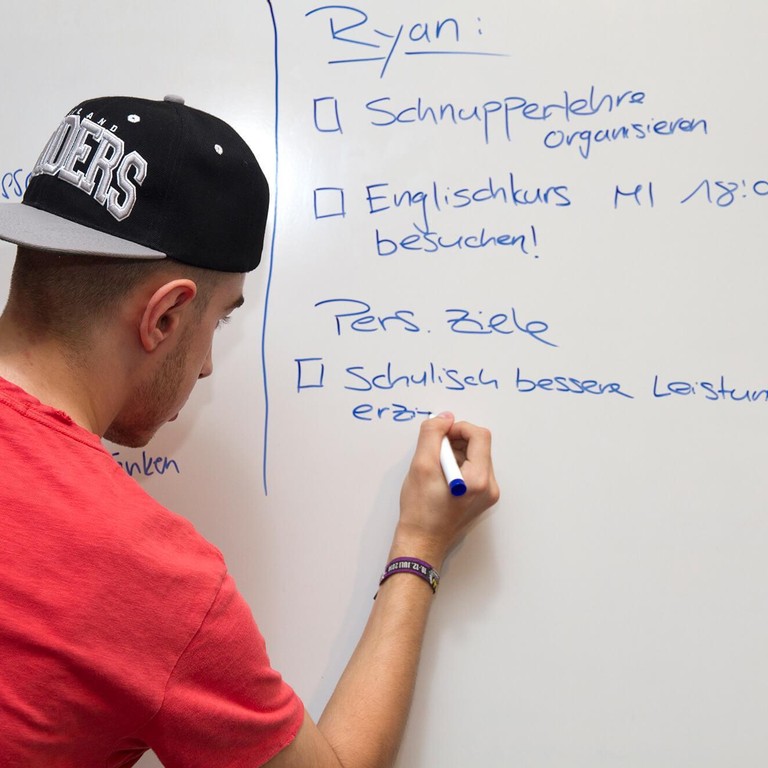 Ryan:
☐ Schnupperlehre
organisieren
☐ Englischkurs MI 18:0
besuchen!
Pers. Ziele
☐ Schulisch bessere Leistun
erzi
DERS